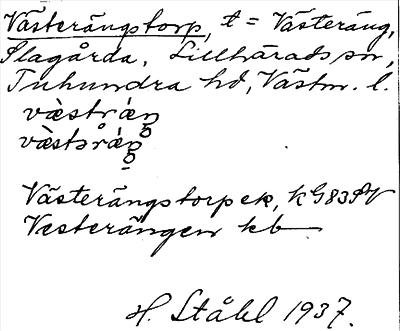 Västerängstorp, t = Västeräng,
Slagårda, Lillhärads sn,
Tuhundra hd, Västm. l.
Västerängstorp ek, k G83
Vesterängen kb
H. Ståhl 1937.